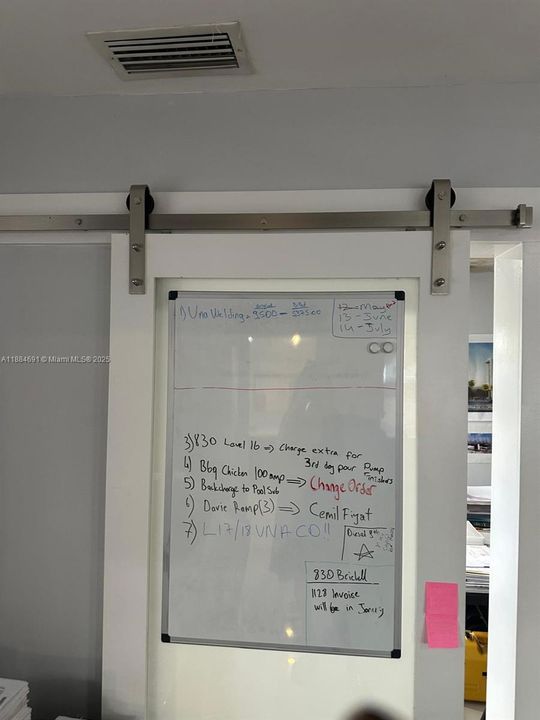 1) Una Welding = 9500 - $37500
12 - May
13 - June
14 - July
3) 830 Level 16 => Charge extra for
3rd day pour Pump
Finishers
4) Bbq Chicken 100 amp
5) Backcharge to Pool Sub => Change Order
6) Davie Ramp (3) => Cemil Fiyat
7) L17/18 VNA CO!!
Diesel
830 Brickell
1128 Invoice
will be in
A11884691 © Miami MLS® 2025